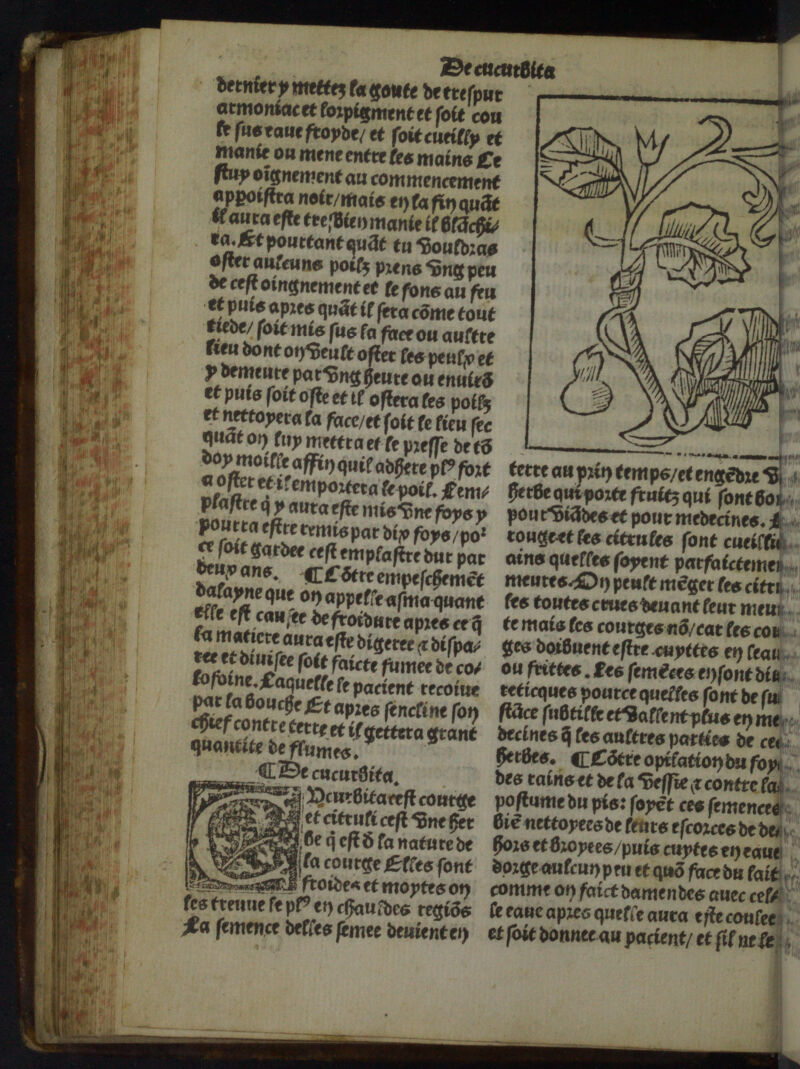 De cucurbita
dernier y mettez la goute de trespur
armoniac et lorpigment et soit cou
le sus eaue froyde/ et soit cueilly et
manie ou mene entre les mains Ce
stuy oīgnement au commencement
appoistra noir/mais en la fin quāt
il aura este tresbien manie il blāchi/
ra. Et pourtant quāt tu vouldras
oster aulcuns poilz prens vng peu
de cest oingnement et le fons au feu
et puis apres quāt il sera cōme tout
tiede/ soit mis sus la face ou aultre
lieu dont on veult oster les peulx et
y demeure par vng heure ou enuirō
et puis soit oste et il ostera les poilz
et nettoyera la face/et soit le lieu sec
quāt on luy mettra et le presse de tō
doy moille affin quil adhere plꝰ fort
a oster et il emportera le poil. Lem/
plastre q̄ y aura este mis vne foys y
pourra estre remis par dix foys/po²
ce soit gardee cest emplastre dur par
deux ans. ¶ Cōtre empeschemēt
dalayne que on appelle asma quant
elle est causee de froidure apres ce q̄
la matiere aura este digeree ⁊ dispa/
ree et diuisee soit faicte fumee de co/
lofoine. Laquelle le pacient recoiue
par la bouche Et apres sencline son
chief contre terre et il gettera grant
quantite de flumes.
¶ De cucurbita.
CVcurbita est courge
et citruli cest vne her
be q̄ est ō la nature de
la courge Elles sont
froides et moytes on
les treuue le plꝰ en chauldes regiōs
La semence delles semee deuient en
terre au prin temps/et engēdre v
herbe qui porte fruitz qui sont bo
pour viādes et pour medecines.
rouge et les citrules sont cueilli
ains quelles soyent parfaictemen
meures. On peult mēger les citru
les toutes crues deuant leur meu
te mais les courges nō/car les cou
ges doibuent estre cuyttes en leau
ou frittes. Les semēces en sont diu
reticques pource quelles sont de su
stāce subtille et vallent plus en me
decines q̄ les aultres parties de ce
herbes. ¶ Cōtre opilation du foy
des rains et de la vessie ⁊ contre la
postume du pis: soyēt ces semences
biē nettoyees de leurs escorces de de
hors et broyees/puis cuytes en eaue
dorge aulcun peu et quō face du lait
comme on faict damendes auec cel/
le eaue apres quelle aura este coulee
et soit donnee au pacient/ et sil ne le